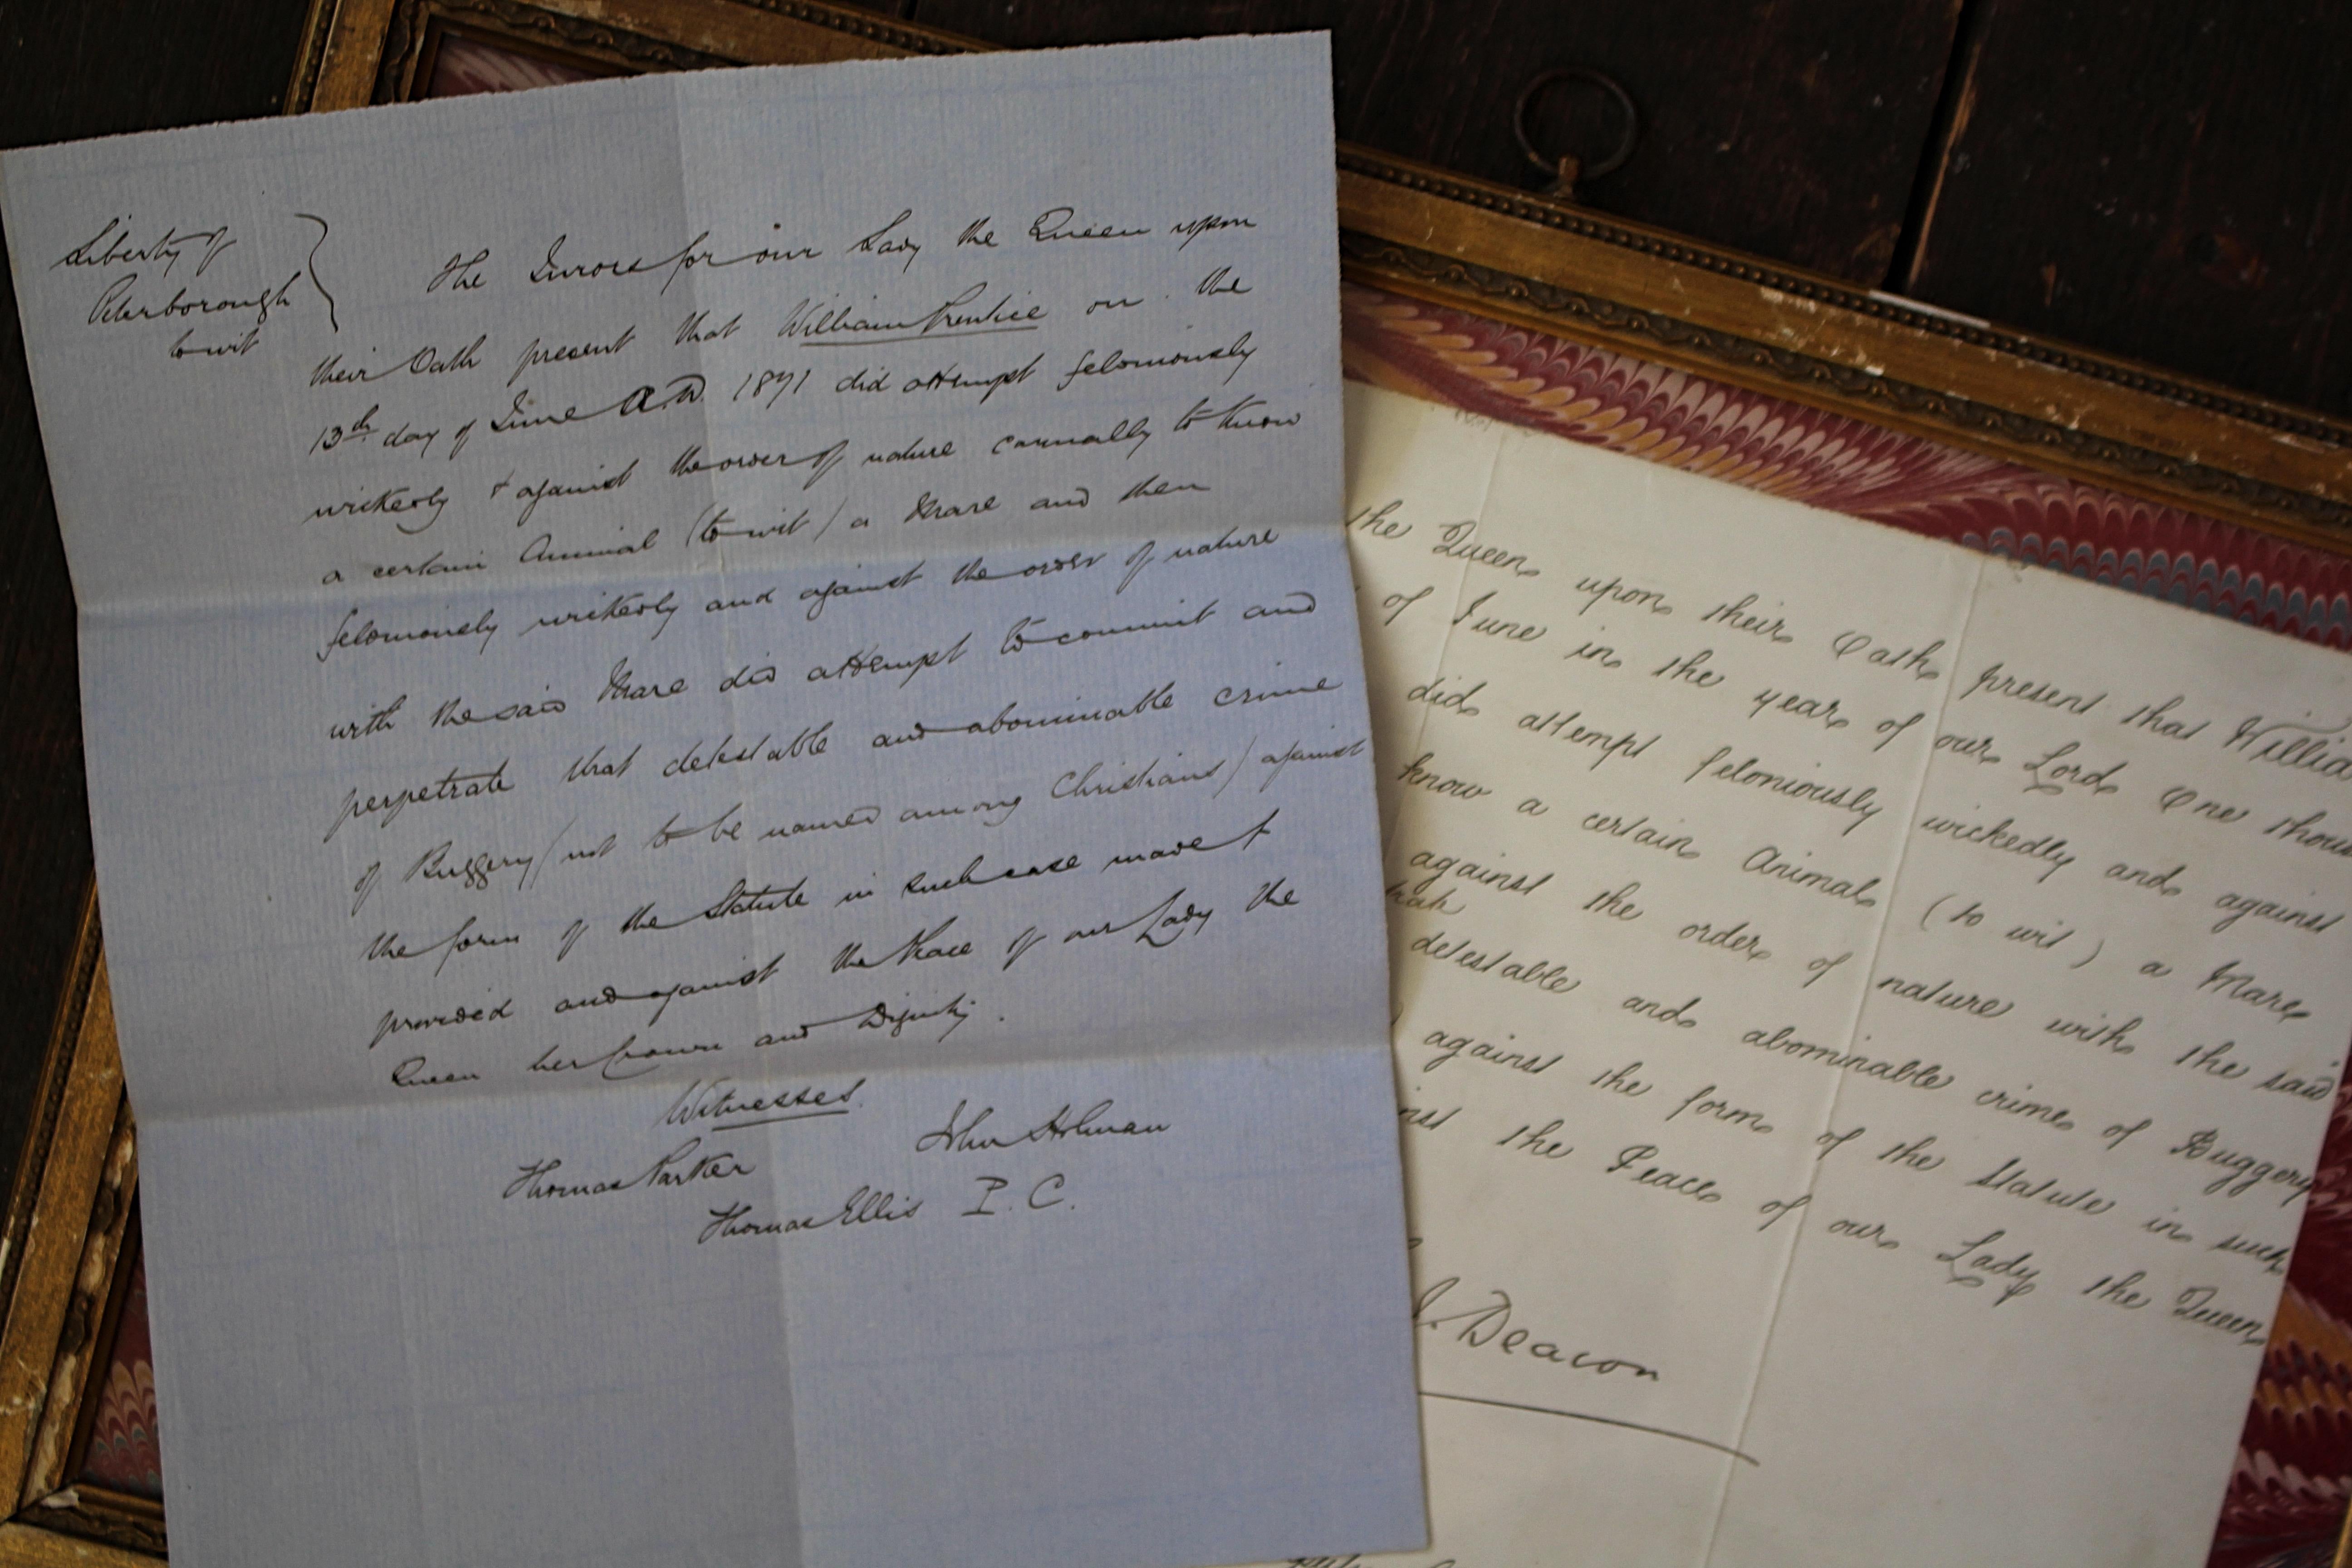 Liberty of
Peterborough
to wit
The Jurors for our Lady the Queen upon
their Oath present that William Prentice on the
13th day of June A.D. 1871 did attempt feloniously
wickedly & against the order of nature carnally to know
a certain Animal (to wit) a Mare and then
feloniously wickedly and against the order of nature
with the said Mare did attempt to commit and
perpetrate that detestable and abominable crime
of Buggery (not to be named among Christians) against
the form of the Statute in such case made &
provided and against the Peace of our Lady the
Queen her Crown and Dignity.
Witnesses
Thomas Parker John Holman
Thomas Ellis P.C.
the Queen upon their Oath present that Willia
of June in the year of our Lord One thou
did attempt feloniously wickedly and against
know a certain Animal (to wit) a Mare
against the order of nature with the said
that
detestable and abominable crime of Buggery
) against the form of the Statute in such
inst the Peace of our Lady the Queen
J. Deacon